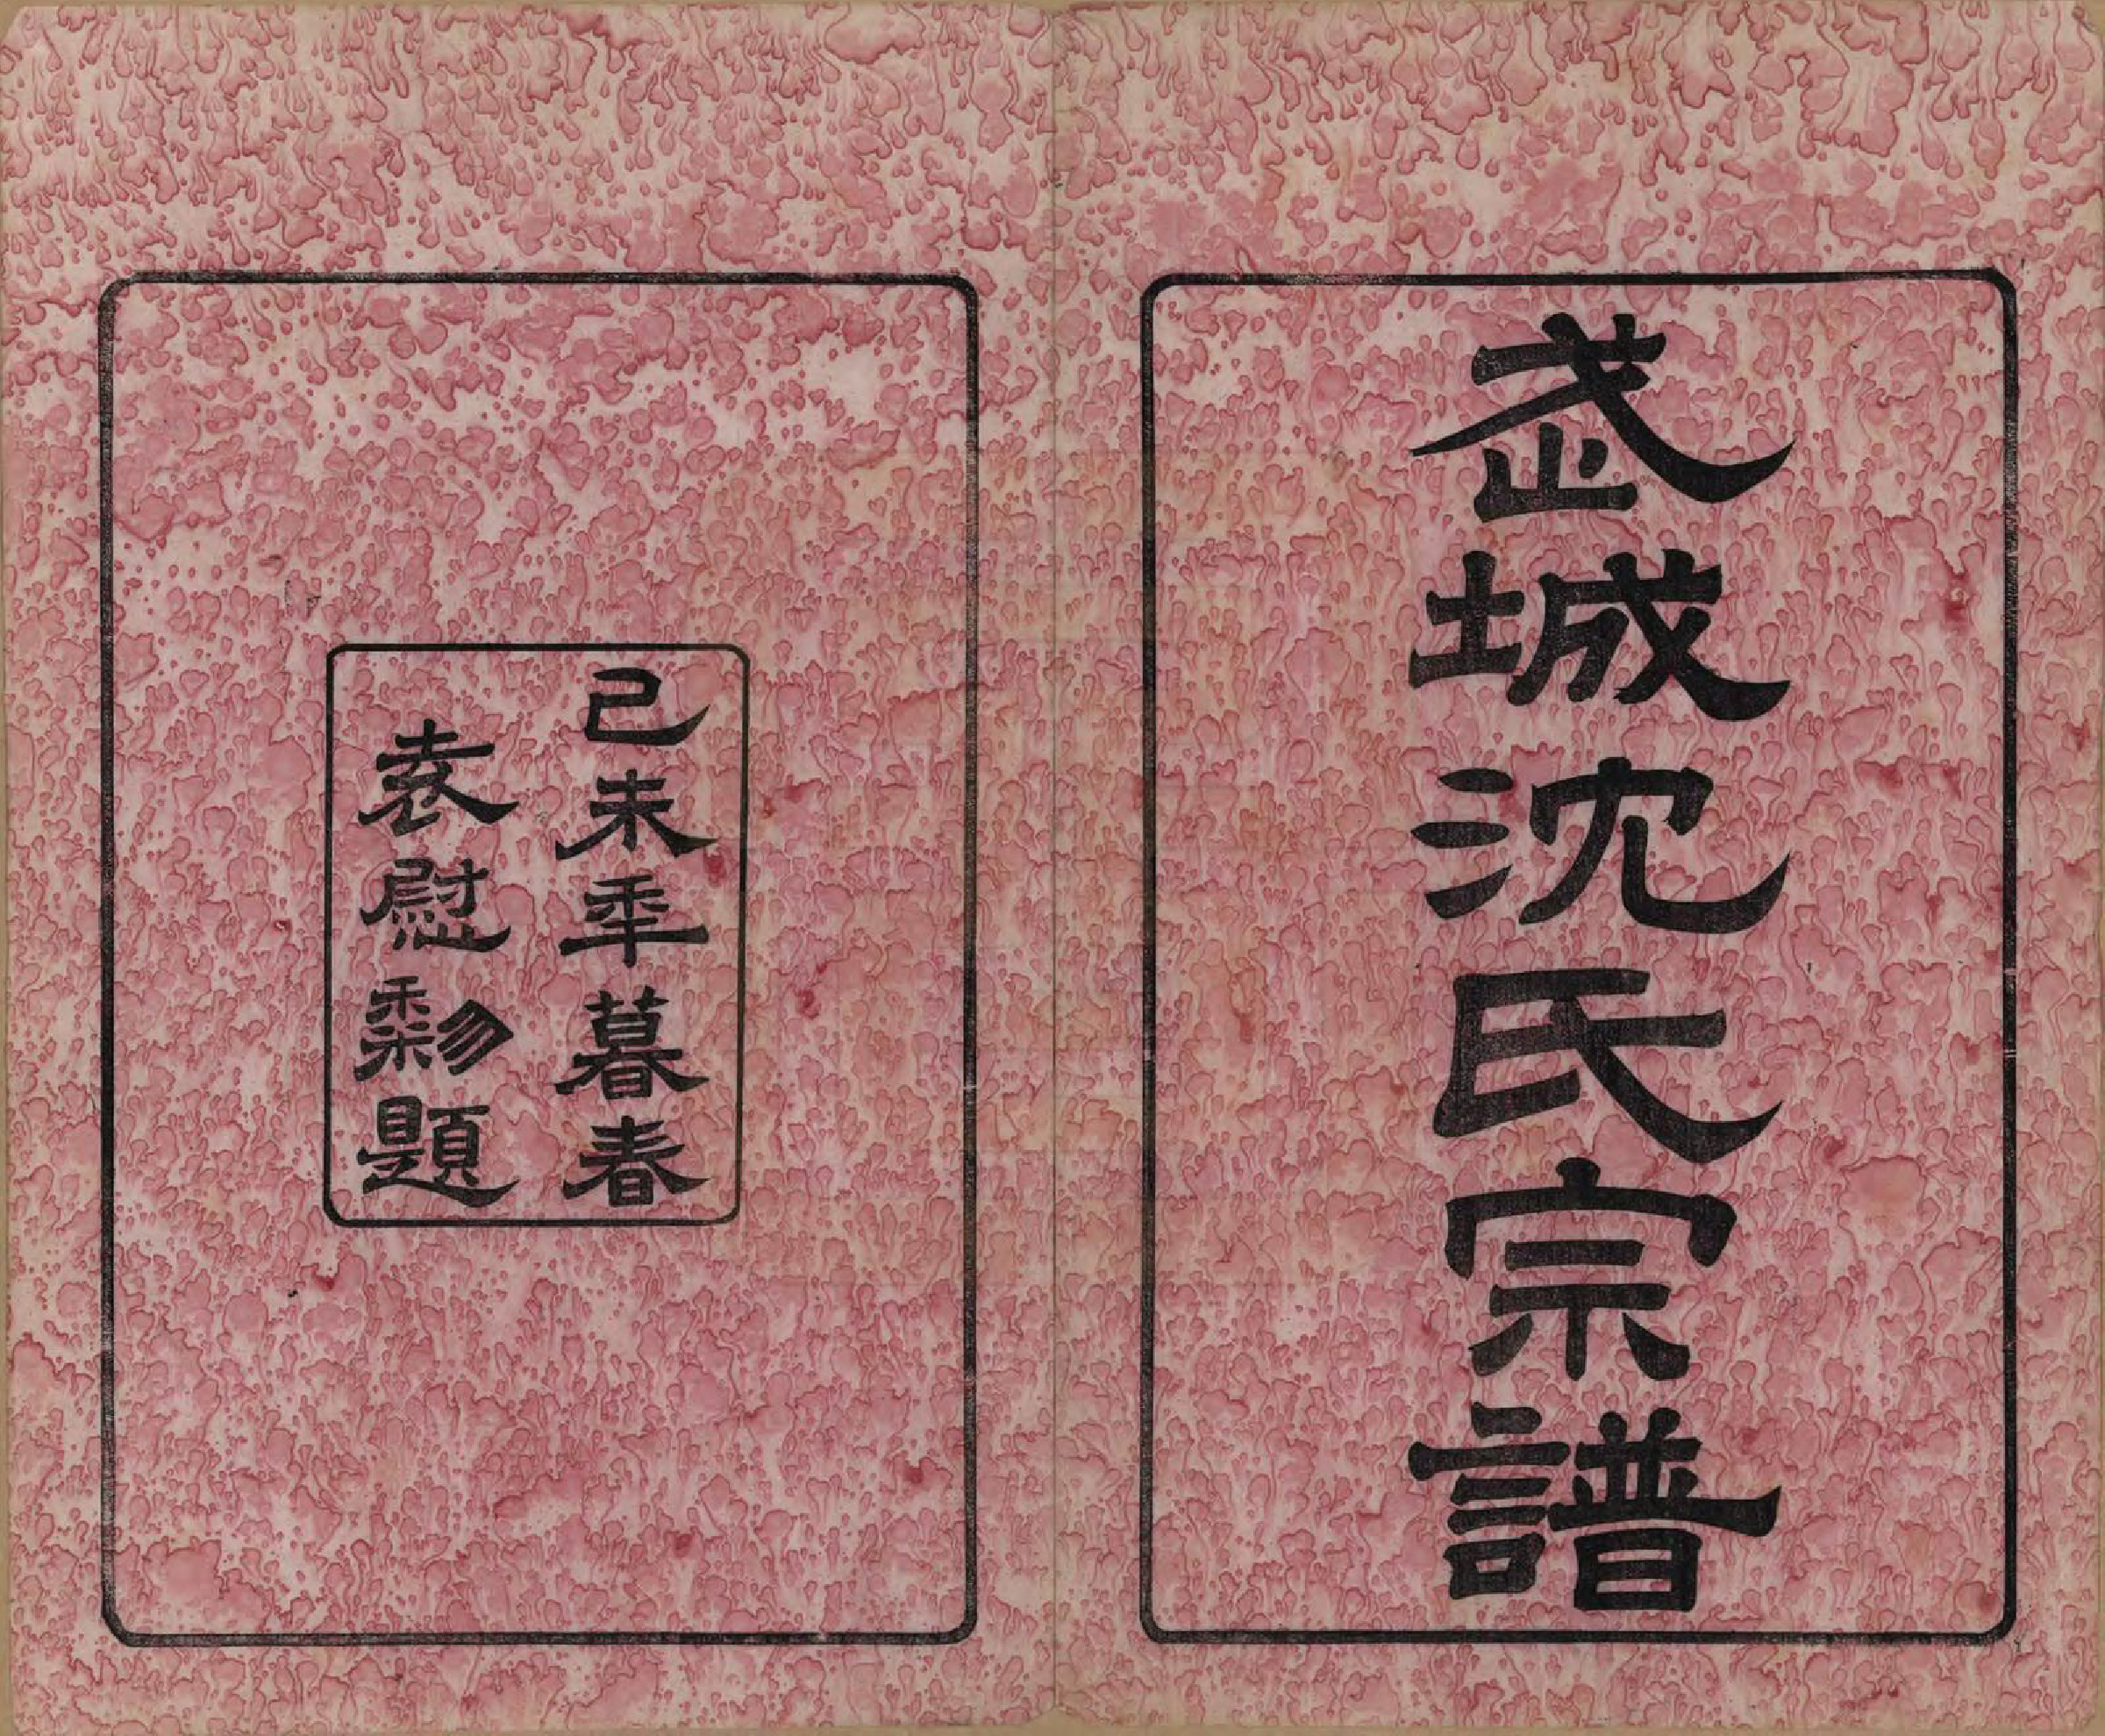 武城沈氏宗譜
己未年暮春
袁慰黎題